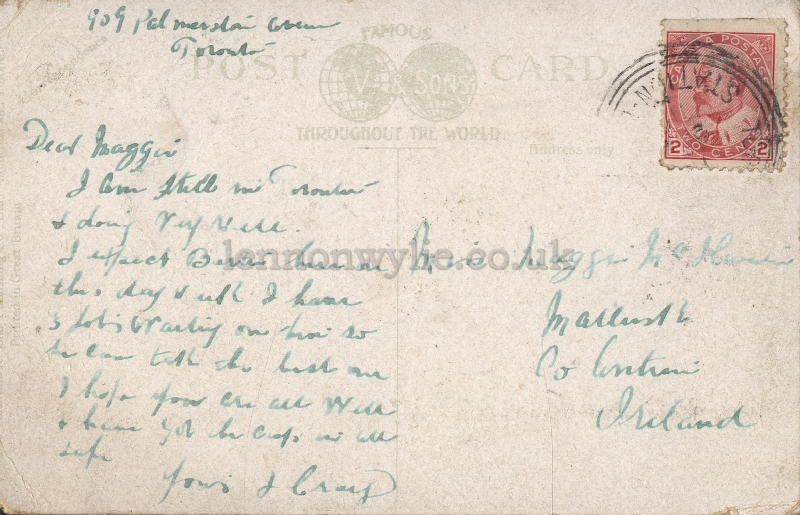 909 Palmerston Avenue
Toronto
FAMOUS
POST CARD
THROUGHOUT THE WORLD
Address only
CANADA POSTAGE
2 TWO CENTS 2
Dear Maggie
I am still in Toronto
& doing very well.
I expect here on
this day week I have
3 jobs waiting on him so
he can take the best one
I hope you are all well
& have got the crop in all
safe
Yours J Craig
Miss Maggie Mc
Mallusk
Co Antrim
Ireland
Printed in Great Britain
lennonwylie.co.uk